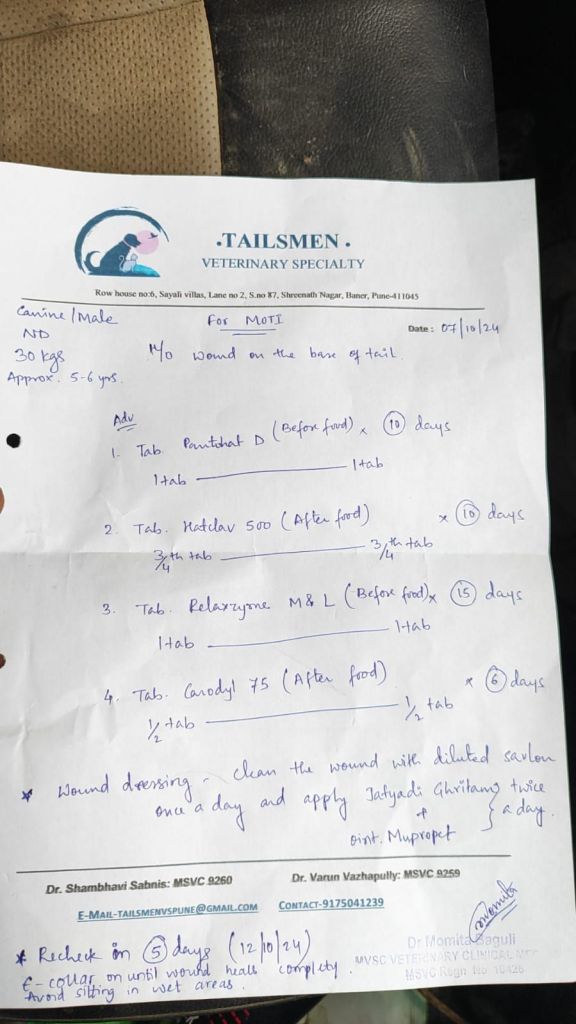 .TAILSMEN.
VETERINARY SPECIALTY
Row house no:6, Sayali villas, Lane no 2, S.no 87, Shreenath Nagar, Baner, Pune-411045
Canine/Male
ND
30 kgs
Approx. 5-6 yrs.
For MOTI
Date: 07/10/24
H/o wound on the base of tail.
Adv
1. Tab. Pantohat D (Before food) x 10 days
1 tab — 1 tab
2. Tab. Hatclav 500 (After food) x 10 days
3/4th tab — 3/4th tab
3. Tab. Relaxzyme M & L (Before food) x 15 days
1 tab — 1 tab
4. Tab. Carodyl 75 (After food) x 6 days
1/2 tab — 1/2 tab
* Wound dressing - clean the wound with diluted savlon
once a day and apply Jatyadi Ghritam twice
+ } a day.
oint. Mupropet
Dr. Shambhavi Sabnis: MSVC 9260
Dr. Varun Vazhapully: MSVC 9259
E-MAIL-TAILSMENVSPUNE@GMAIL.COM
CONTACT-9175041239
Momita
Dr Momita Baguli
MVSC VETERINARY CLINICAL
MSVC Regn No 10426
* Recheck in 5 days (12/10/24)
E-collar on until wound heals complety.
Avoid sitting in wet areas.